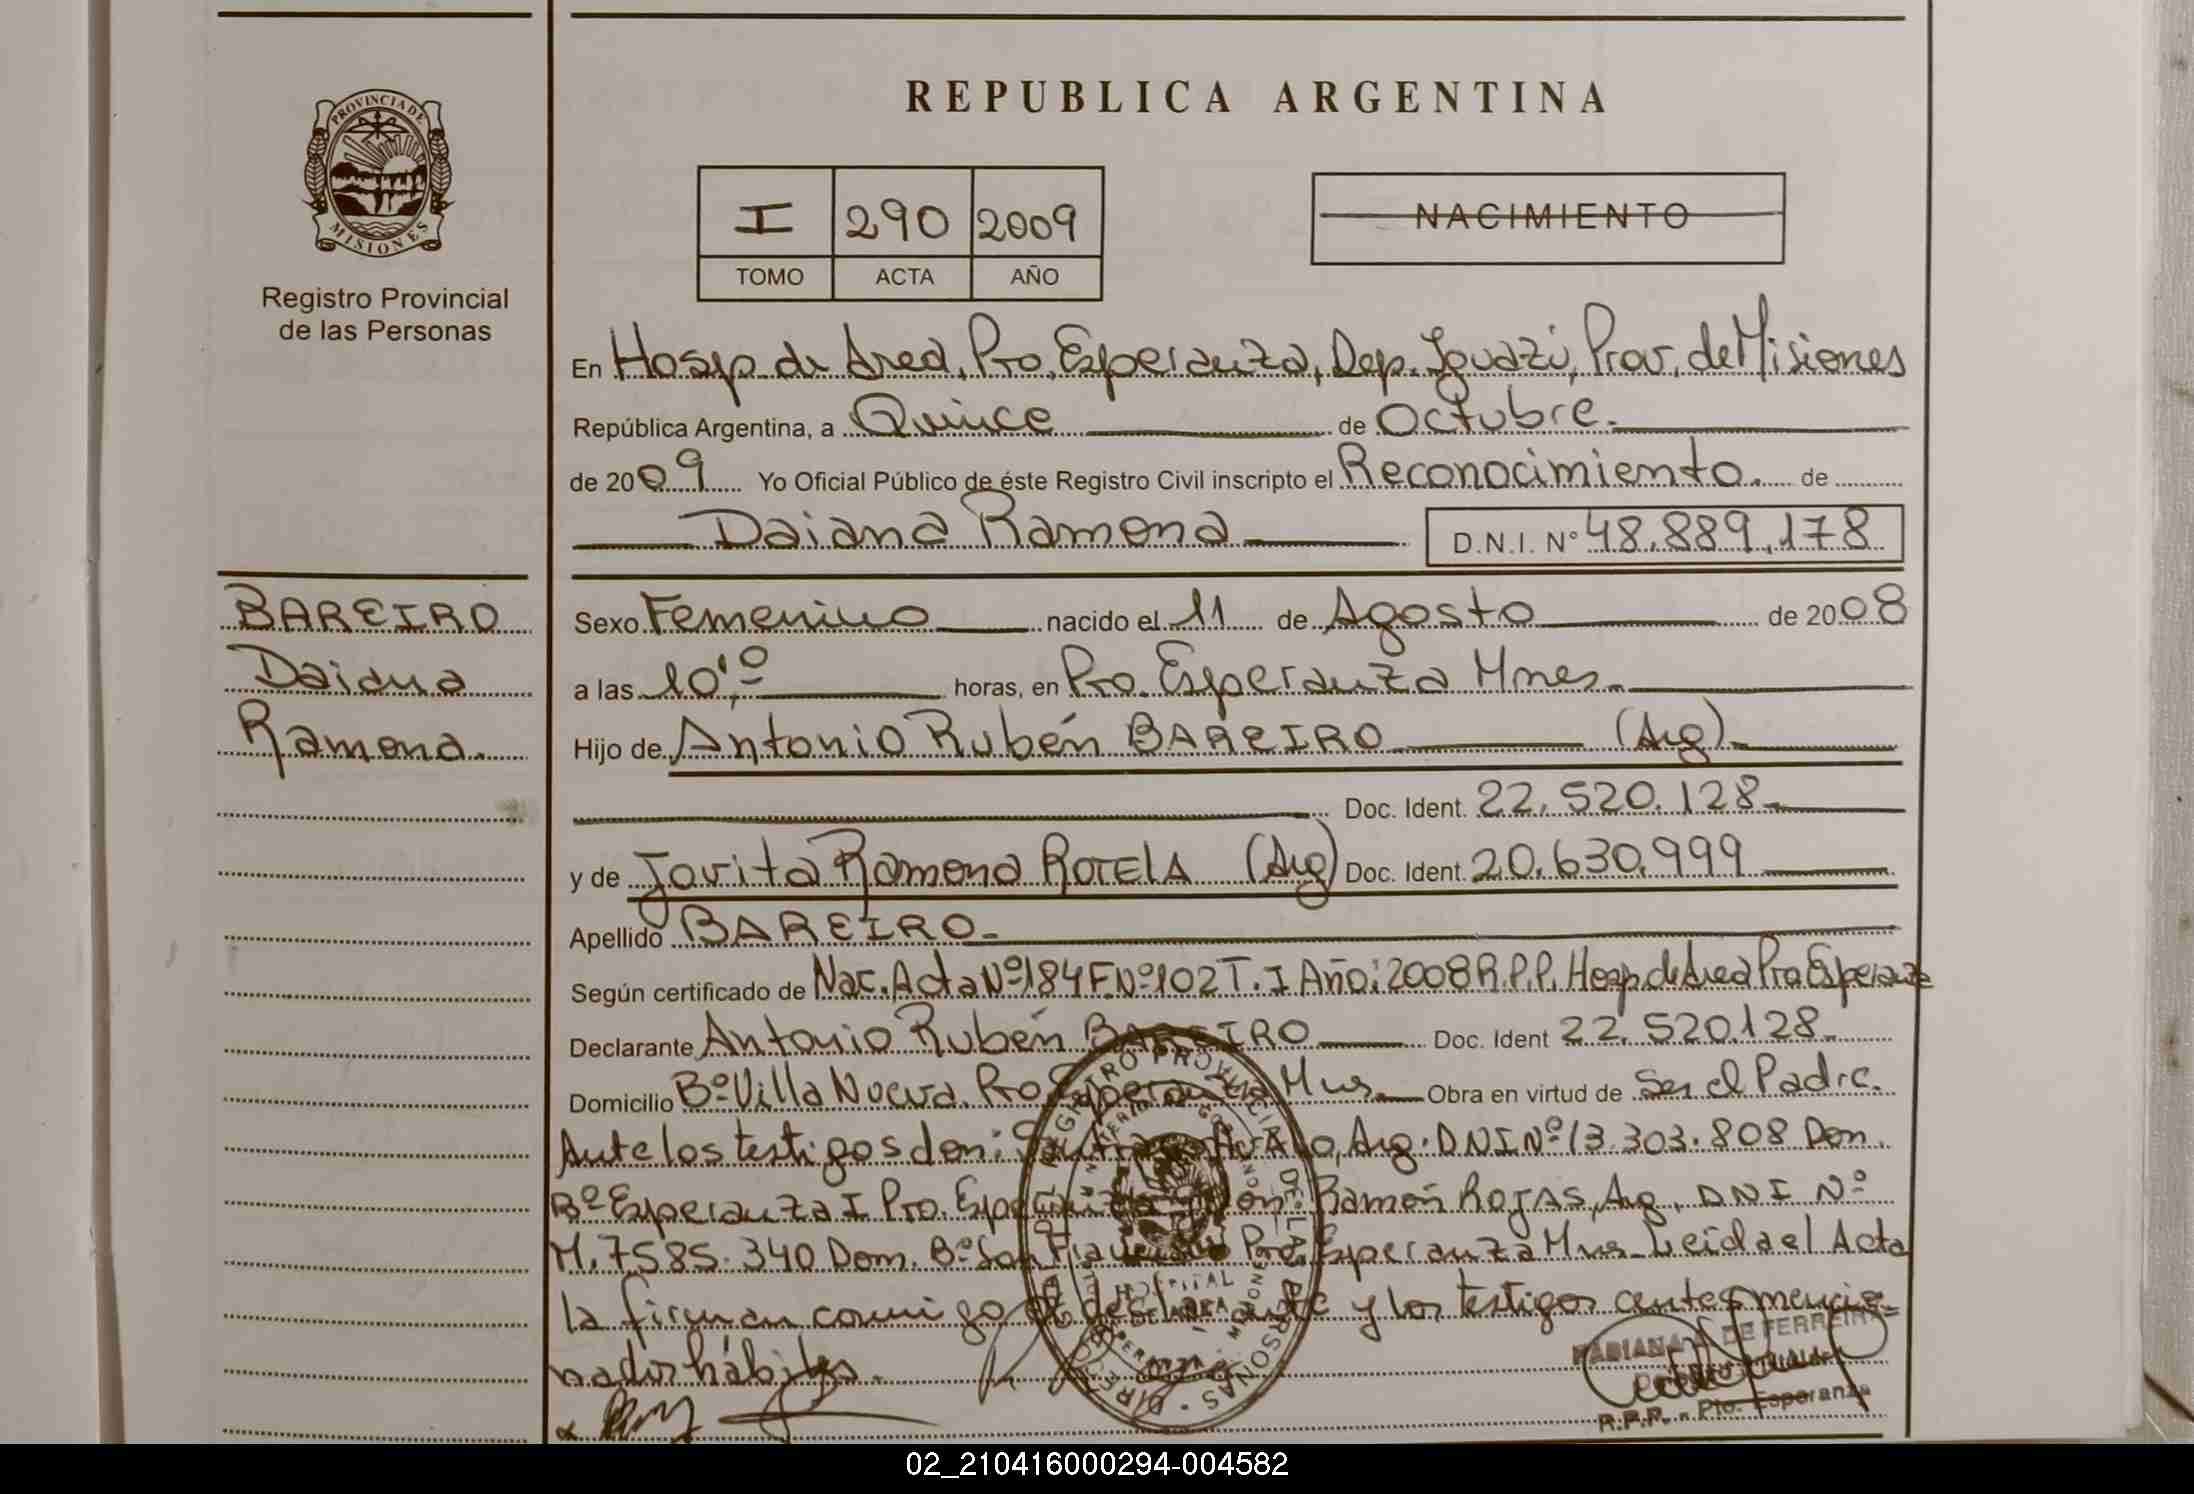 REPUBLICA ARGENTINA
PROVINCIA DE
MISIONES
Registro Provincial
de las Personas
I 290 2009
TOMO ACTA AÑO
NACIMIENTO
En Hosp. de Area, Pto. Esperanza, Dep. Iguazú, Prov. de Misiones
República Argentina, a Quince de Octubre.
de 2009 Yo Oficial Público de éste Registro Civil inscripto el Reconocimiento. de
Daiana Ramona D.N.I. N° 48.889.178
BAREIRO
Daiana
Ramona.
Sexo Femenino nacido el 11 de Agosto de 2008
a las 10,º horas, en Pto. Esperanza Mnes.
Hijo de Antonio Rubén BAREIRO (Arg)
Doc. Ident. 22.520.128
y de Jovita Ramona ROTELA (Arg) Doc. Ident. 20.630.999
Apellido BAREIRO.
Según certificado de Nac. Acta Nº 184 F.Nº 102 T. I Año: 2008 R.P.P. Hosp. de Area Pto Esperanza
Declarante Antonio Rubén BAREIRO Doc. Ident 22.520.128.
Domicilio Bº Villa Nueva. Pto. Esperanza Mns. Obra en virtud de Ser el Padre.
Ante los testigos don: Arg. DNI Nº 13.303.808 Dom.
Bº Esperanza I Pto. Esperanza Ramón ROJAS, Arg, DNI Nº
M. 7585.340 Dom. Bº San Pto. Esperanza Mns. Leida el Acta
la firman conmigo el declarante y los testigos antes mencio-
nados hábiles.
REGISTRO PROVINCIAL DE LAS PERSONAS
HOSPITAL
DE AREA
FABIANA DE FERREIRA
R.P.P. - Pto. Esperanza
02_210416000294-004582